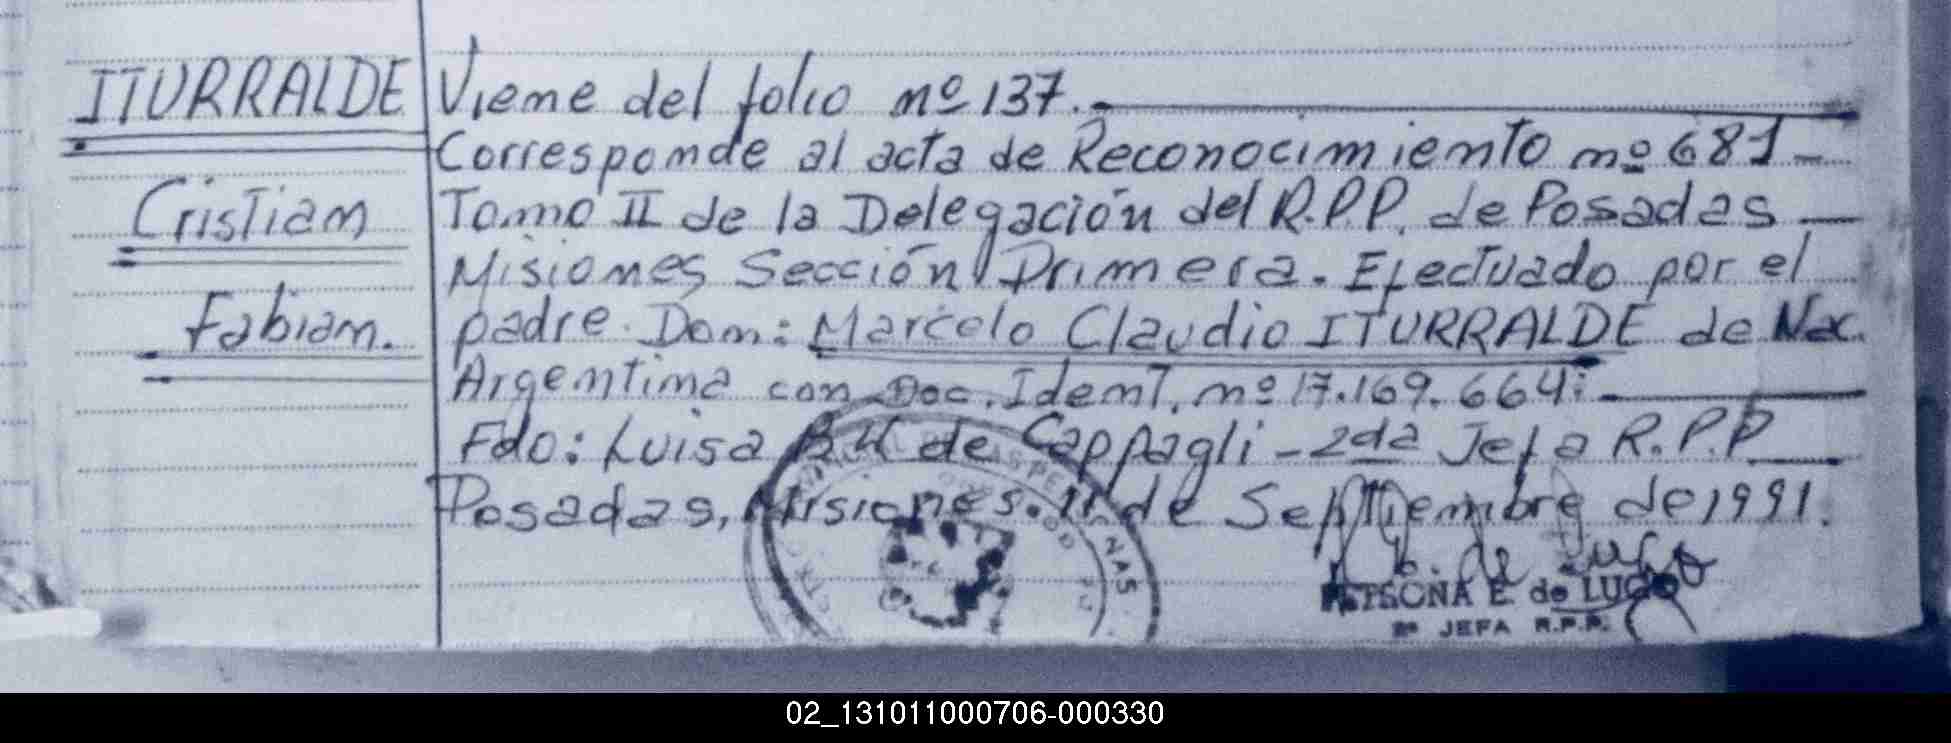 ITURRALDE
Cristian
Fabian.
Viene del folio nº 137.
Corresponde al acta de Reconocimiento nº 681
Tomo II de la Delegación del R.P.P. de Posadas
Misiones Sección Primera. Efectuado por el
padre. Don: Marcelo Claudio ITURRALDE de Nac.
Argentina con Doc. Ident. nº 17.169.664:
Fdo: Luisa B.H de Cappagli - 2da Jefa R.P.P
Posadas, Misiones. 11 de Septiembre de 1991.
E. de LUGO
2ª JEFA R.P.P.
02_131011000706-000330